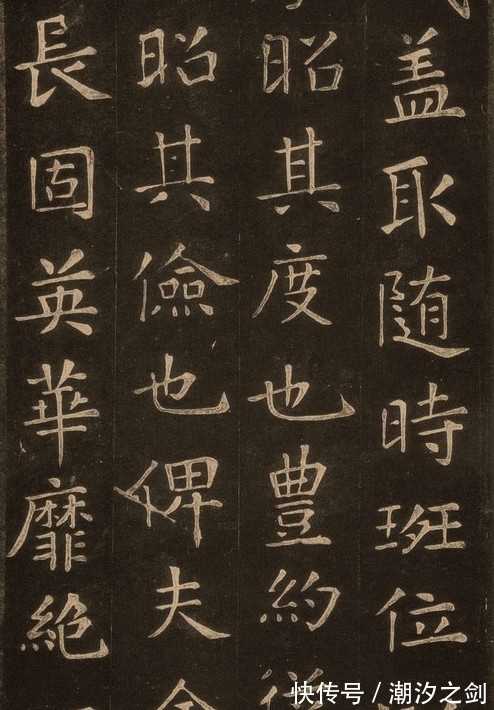 盖取随時班位
昭其度也豊約
昭其儉也俾夫
長固英華靡絶
快传号/潮汐之剑